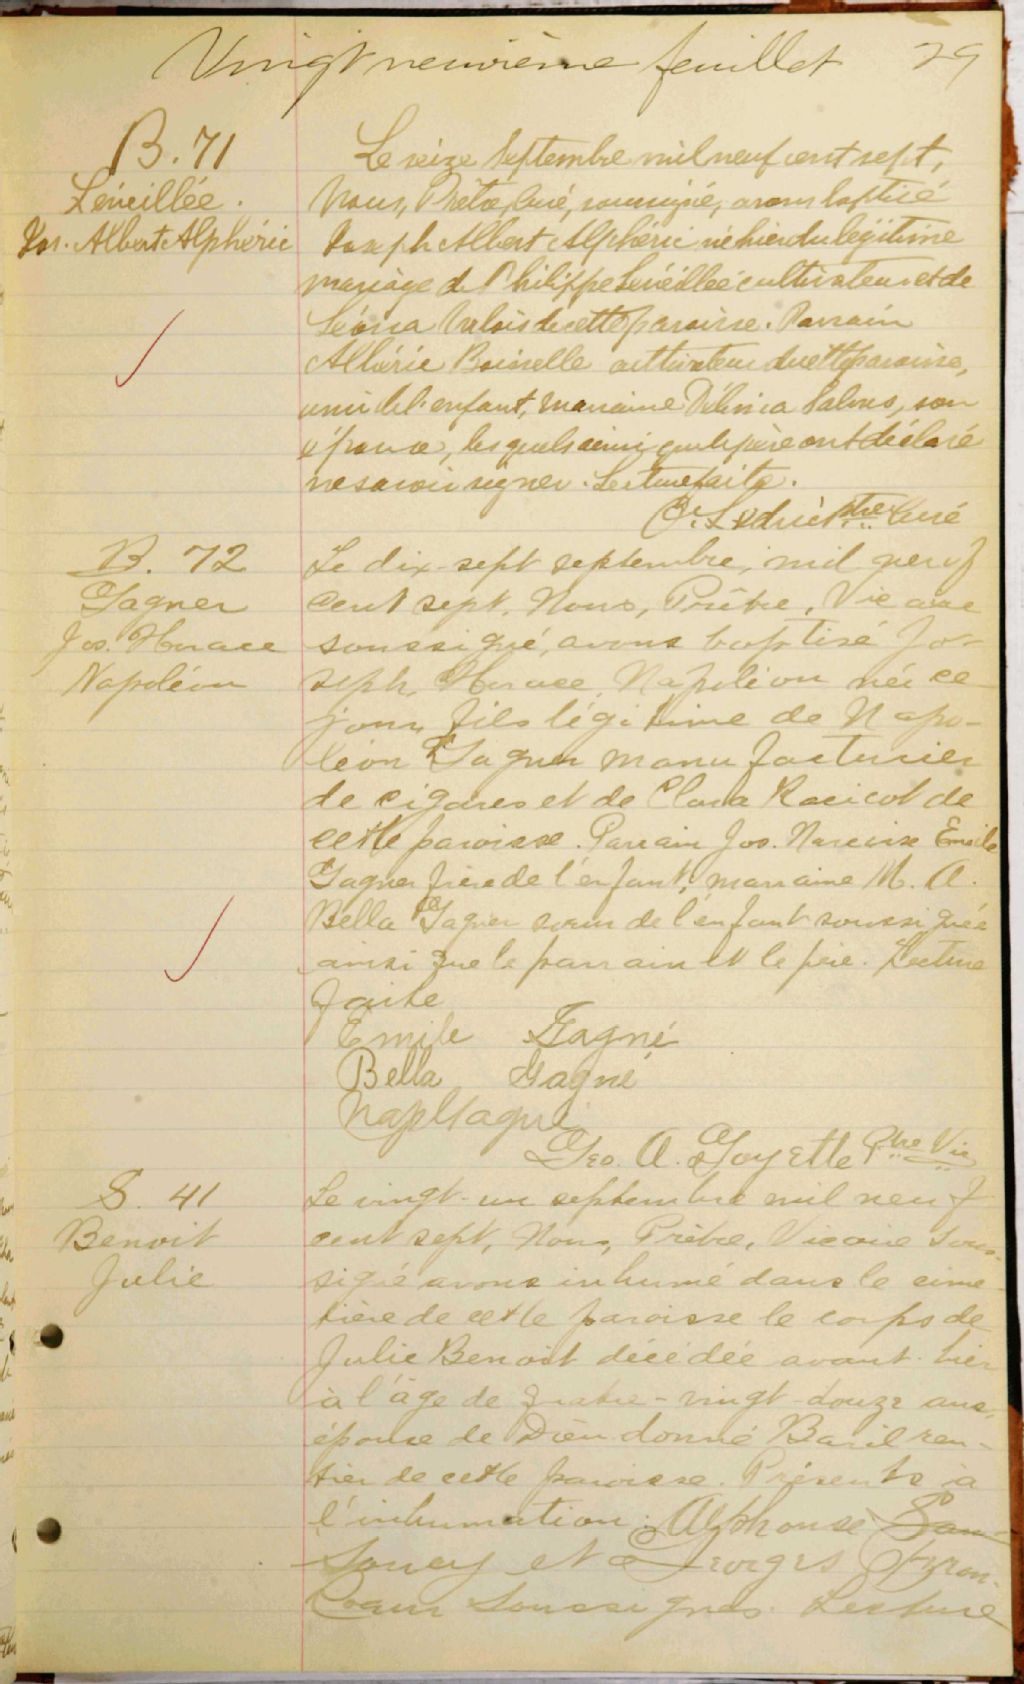 Vingt neuvième feuillet 29
B. 71
Léveillée.
Jos. Albert Alphérie
Le seize Septembre mil neuf cent sept,
Nous, Prêtre, Curé, soussigné, avons baptisé
Joseph Albert Alphérie né hier du légitime
mariage de Philippe Léveillée cultivateur et de
Léona Valois de cette paroisse. Parrain
Albérie Boisselle cultivateur de cette paroisse,
ami de l'enfant, marraine Délima Valois, son
épouse, lesquels ainsi que le père ont déclaré
ne savoir signer. Lecture faite.
Ptre Curé
B. 72
Gagner
Jos. Horace
Napoléon
Le dix-sept septembre, mil neuf
cent sept, Nous, Prêtre, Vicaire
soussigné, avons baptisé Jo-
seph, Horace, Napoléon né ce
jour, fils légitime de Napo-
léon Gagner manufacturier
de cigares et de Clara Racicot de
cette paroisse. Parrain Jos. Narcisse Emile
Gagner frère de l'enfant, marraine M. A.
Bella Gagner soeur de l'enfant soussignés
ainsi que le parrain et le père. Lecture
faite
Emile Gagné
Bella Gagné
Nap Gagné
Geo. A. Goyette Ptre Vic
S. 41
Benoit
Julie
Le vingt-un septembre mil neuf
cent sept, Nous, Prêtre, Vicaire sous-
signé avons inhumé dans le cime-
tière de cette paroisse le corps de
Julie Benoit décédée avant-hier
à l'âge de quatre-vingt-douze ans,
épouse de Dieudonné Baril ren-
tier de cette paroisse. Présents à
l'inhumation: Alphonse San-
Soucy et Georges
soussignés. Lecture